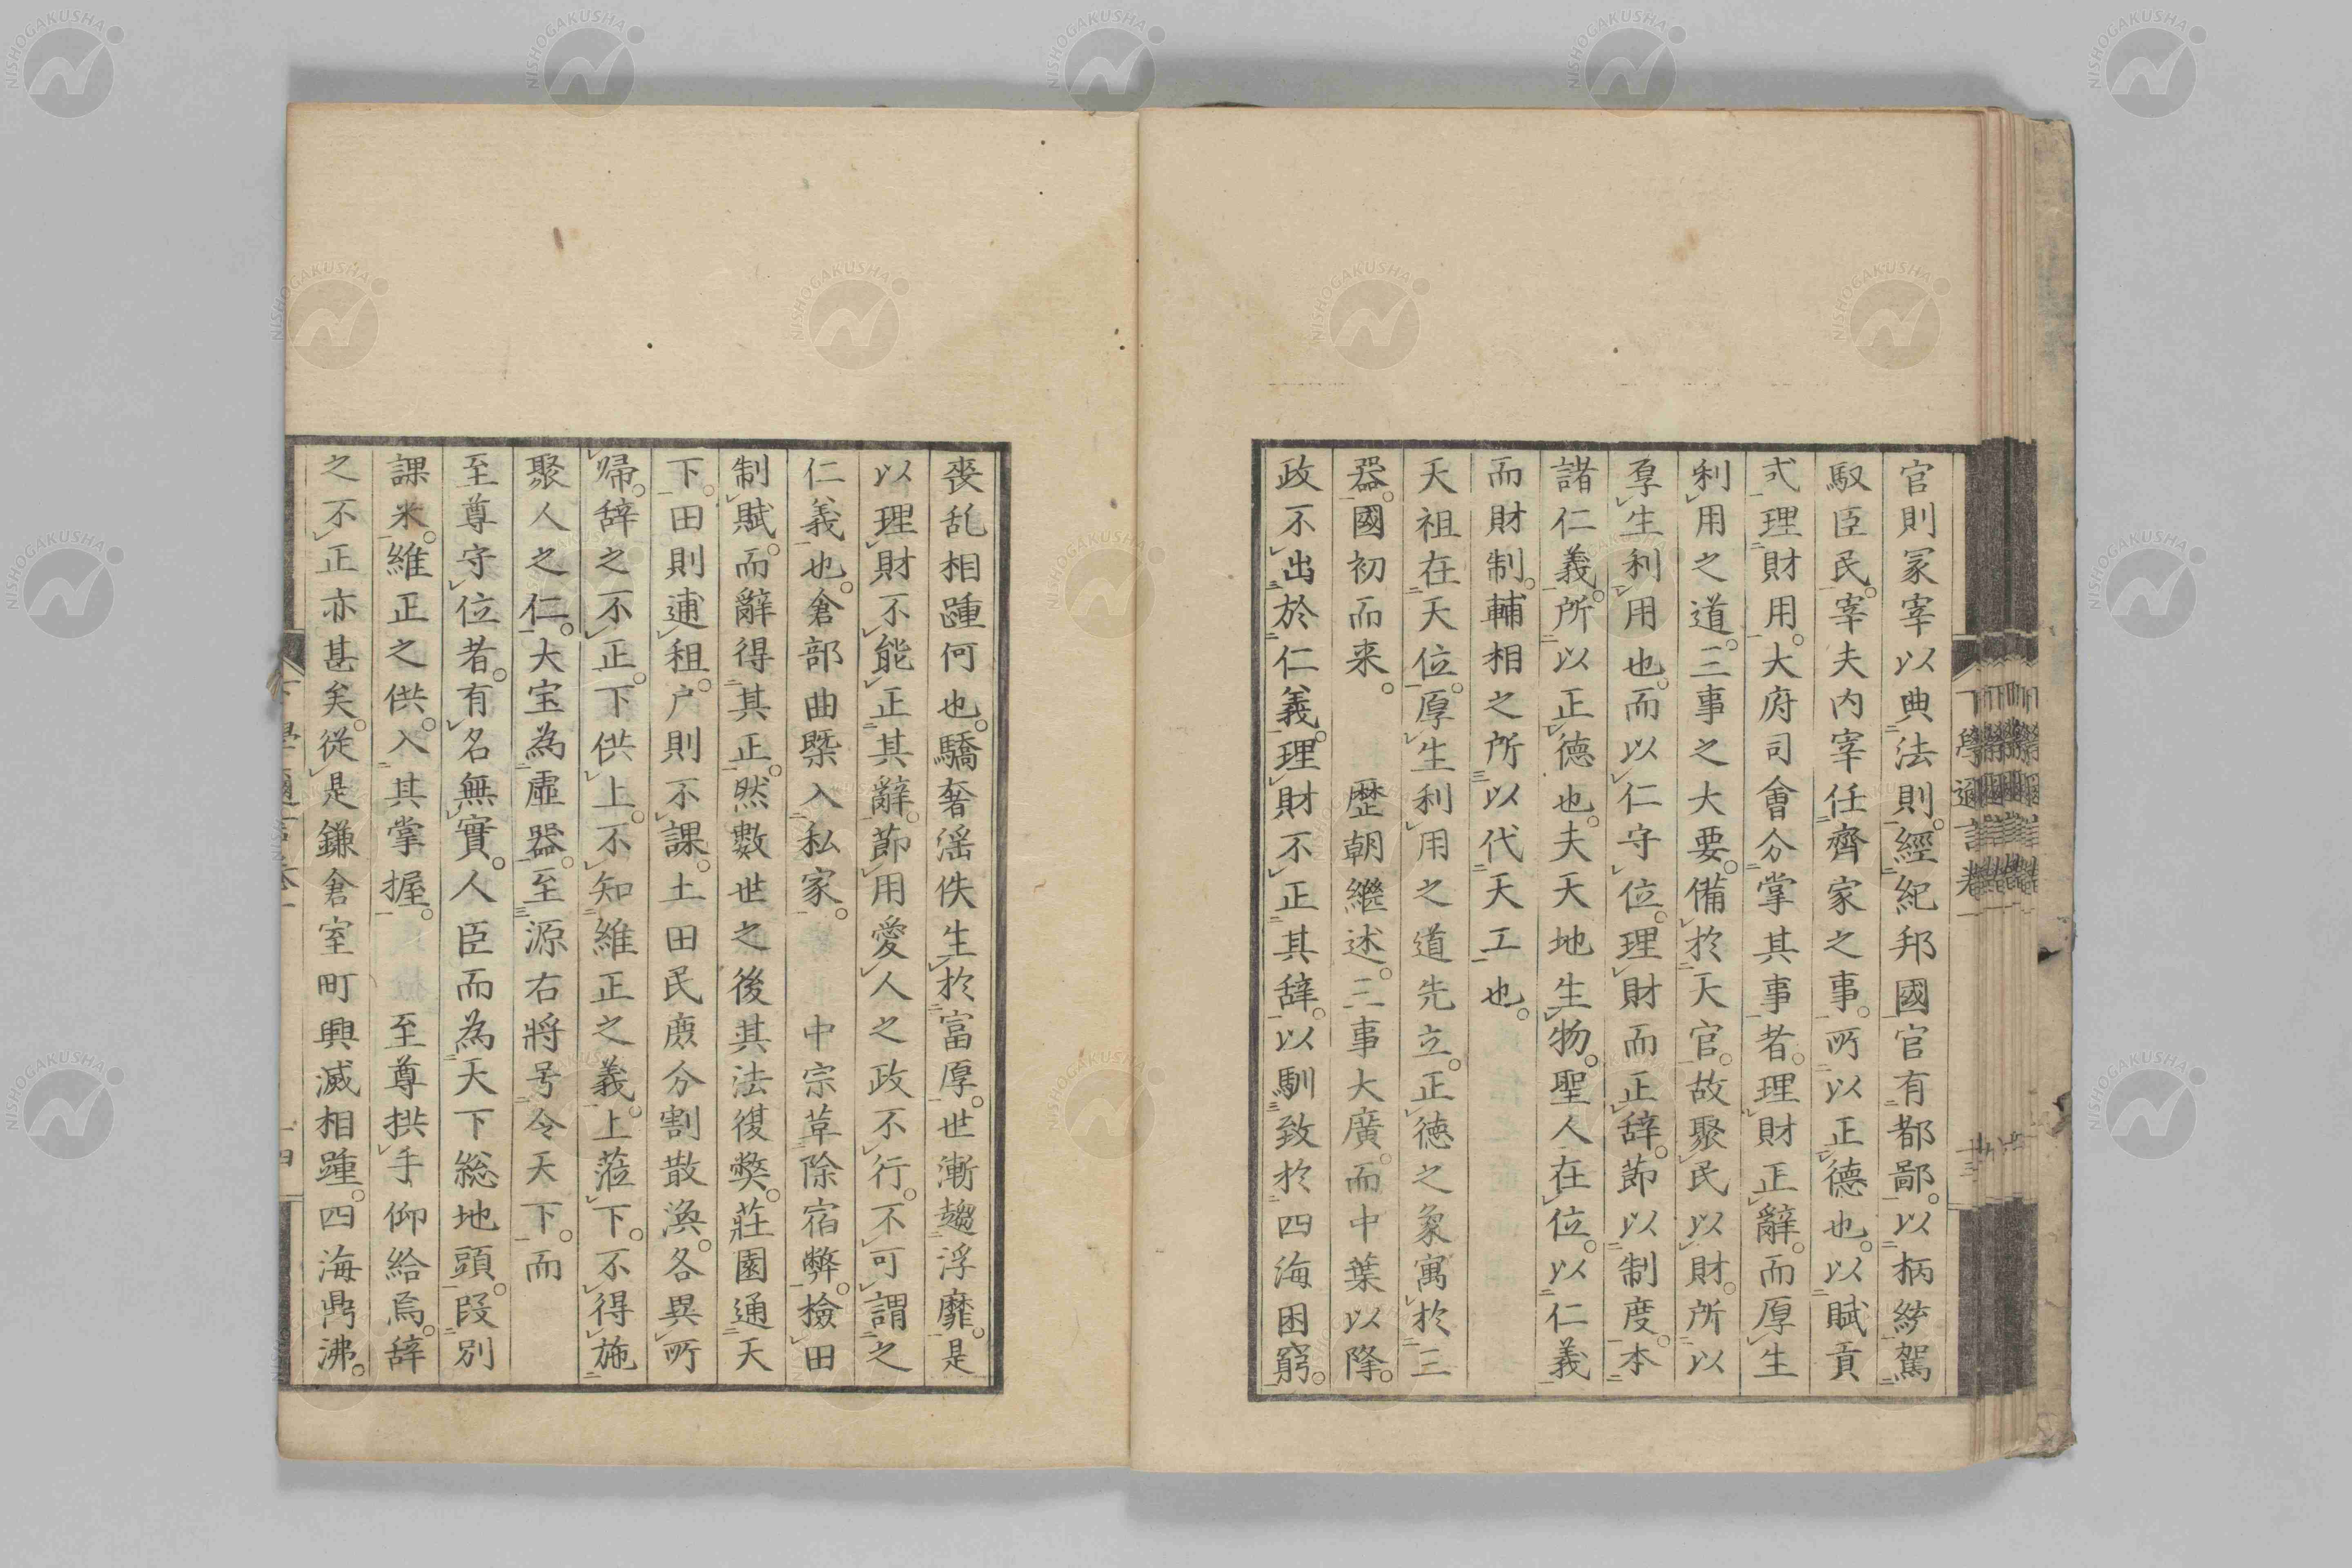 官則冢宰以典法則。經紀邦國官有都鄙。以柄統駕
馭臣民。宰夫内宰任齊家之事。所以正德也。以賦貢
式理財用。大府司會分掌其事者。理財正辭。而厚生
利用之道。三事之大要。備於天官。故聚民以財。所以
厚生利用也。而以仁守位。理財而正辞。節以制度。本
諸仁義。所以正德也。夫天地生物。聖人在位。以仁義
而財制。輔相之所以代天工也。
天祖在天位。厚生利用之道先立。正徳之象寓於三
器。國初而来。　歴朝繼述。三事大廣。而中葉以降。
政不出於仁義。理財不正其辞。以馴致於四海困窮。
喪乱相踵何也。驕奢滛佚生於富厚。世漸趨浮靡。是
以理財不能正其辭。節用愛人之政不行。不可謂之
仁義也。倉部曲槩入私家。　中宗草除宿弊。檢田
制賦。而辭得其正。然數世之後其法復獘。莊園通天
下。田則逋租。户則不課。土田民庶分割散渙。各異所
帰。辞之不正。下供上。不知維正之義。上蒞下。不得施
聚人之仁。大宝為虚器。至源右將号令天下。而
至尊守位者。有名無實。人臣而為天下総地頭。段別
課米。維正之供。入其掌握。　至尊拱手仰給焉。辞
之不正亦甚矣。従是鎌倉室町興滅相踵。四海鼎沸。
下學邇言卷一
NISHOGAKUSHA